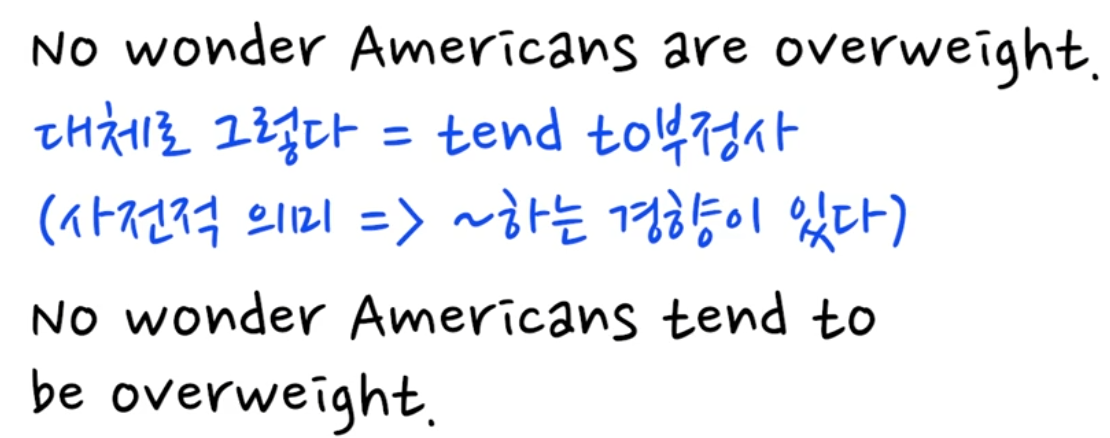 No wonder Americans are overweight.
대체로 그렇다 = tend to부정사
(사전적 의미 => ~하는 경향이 있다)
No wonder Americans tend to
be overweight.